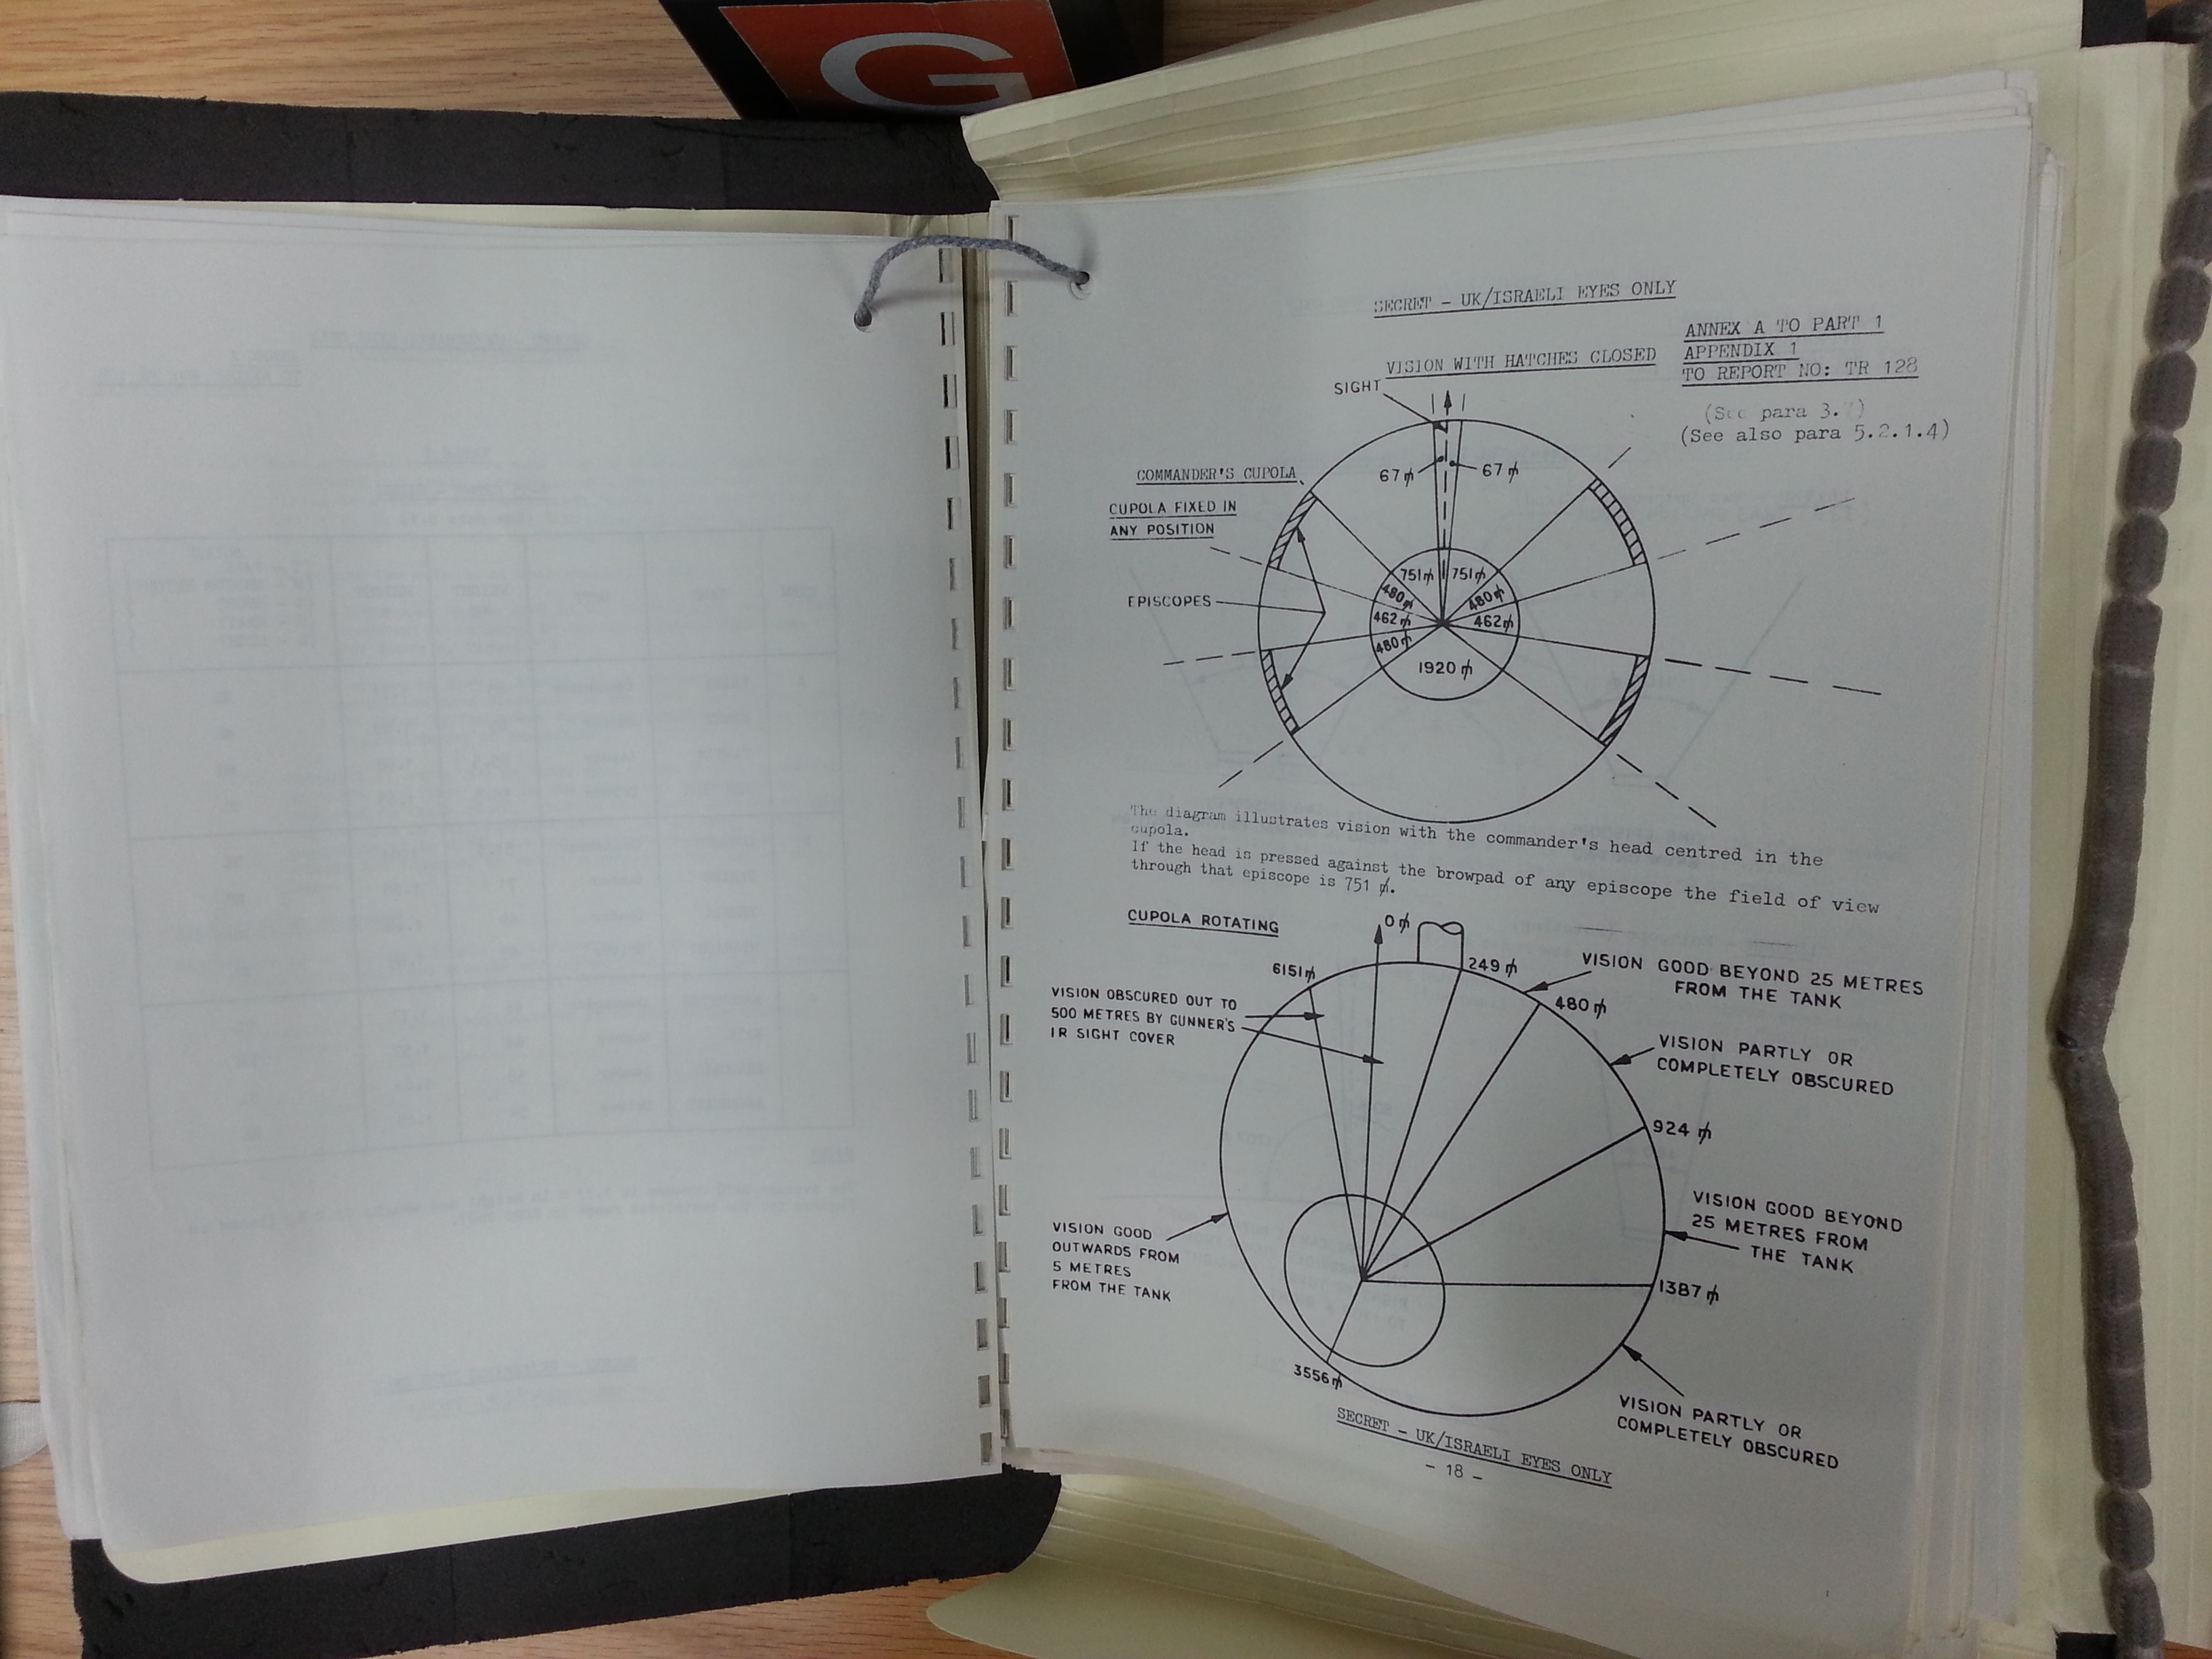 G
SECRET - UK/ISRAELI EYES ONLY
ANNEX A TO PART 1
APPENDIX 1
TO REPORT NO: TR 128
VISION WITH HATCHES CLOSED
(See para 3.7)
(See also para 5.2.1.4)
SIGHT
67 ₥ 67 ₥
COMMANDER'S CUPOLA
CUPOLA FIXED IN
ANY POSITION
EPISCOPES
751₥ 751₥
480₥ 480₥
462₥ 462₥
480₥
1920 ₥
The diagram illustrates vision with the commander's head centred in the
cupola.
If the head is pressed against the browpad of any episcope the field of view
through that episcope is 751 ₥.
CUPOLA ROTATING
0 ₥
6151₥
249 ₥
VISION GOOD BEYOND 25 METRES
FROM THE TANK
480 ₥
VISION OBSCURED OUT TO
500 METRES BY GUNNER'S
IR SIGHT COVER
VISION PARTLY OR
COMPLETELY OBSCURED
924 ₥
VISION GOOD BEYOND
25 METRES FROM
THE TANK
VISION GOOD
OUTWARDS FROM
5 METRES
FROM THE TANK
1387 ₥
3556₥
VISION PARTLY OR
COMPLETELY OBSCURED
SECRET - UK/ISRAELI EYES ONLY
- 18 -